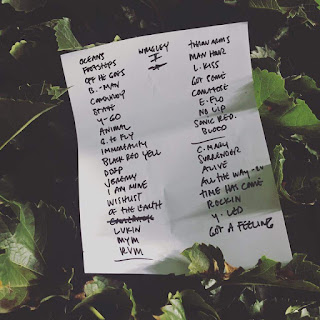 OCEANS
FOOTSTEPS
OFF HE GOES
B.-MAN
CORDUROY
Y-GO
ANIMAL
G. TO FLY
IMMORTALITY
BLACK RED YELL
DEEP
JEREMY
I AM MINE
WISHLIST
OF THE EARTH
LUKIN
MYM
RVM
WRIGLEY
I
THROW ARMS
MAN HOUR
L. KISS
GOT SOME
COMATOSE
E. FLO
NO LIP
SONIC RED.
BLOOD
C. MARY
SURRENDER
ALIVE
ALL THE WAY
TIME HAS COME
ROCKIN
Y. LED
GOT A FEELING